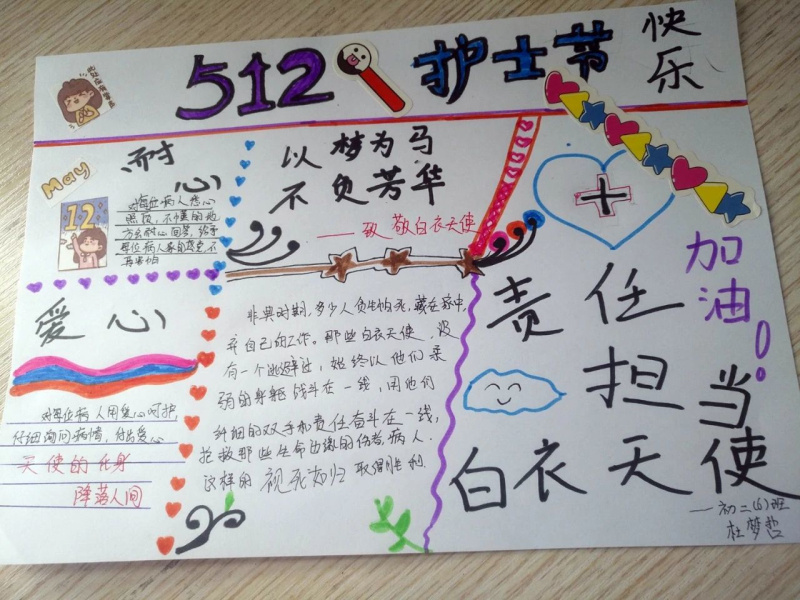 512 护士节
快乐
May
12
耐心
对每位病人悉心
照顾，不懂的地
方会耐心回答，给予
每位病人家的感觉，不
再害怕
以梦为马
不负芳华
——致敬白衣天使
爱心
对每位病人用爱心呵护，
仔细询问病情，付出爱心
天使的化身
降落人间
非典时期，多少人贪生怕死，藏在家中，
弃自己的工作。那些白衣天使，没
有一个逃避过，始终以他们柔
弱的身躯战斗在一线，用他们
纤细的双手和责任奋斗在一线，
抢救那些生命边缘的伤者病人．
这样的视死如归 取得胜利．
加油！
责任
担当
白衣天使
——初二(6)班
杜梦哲